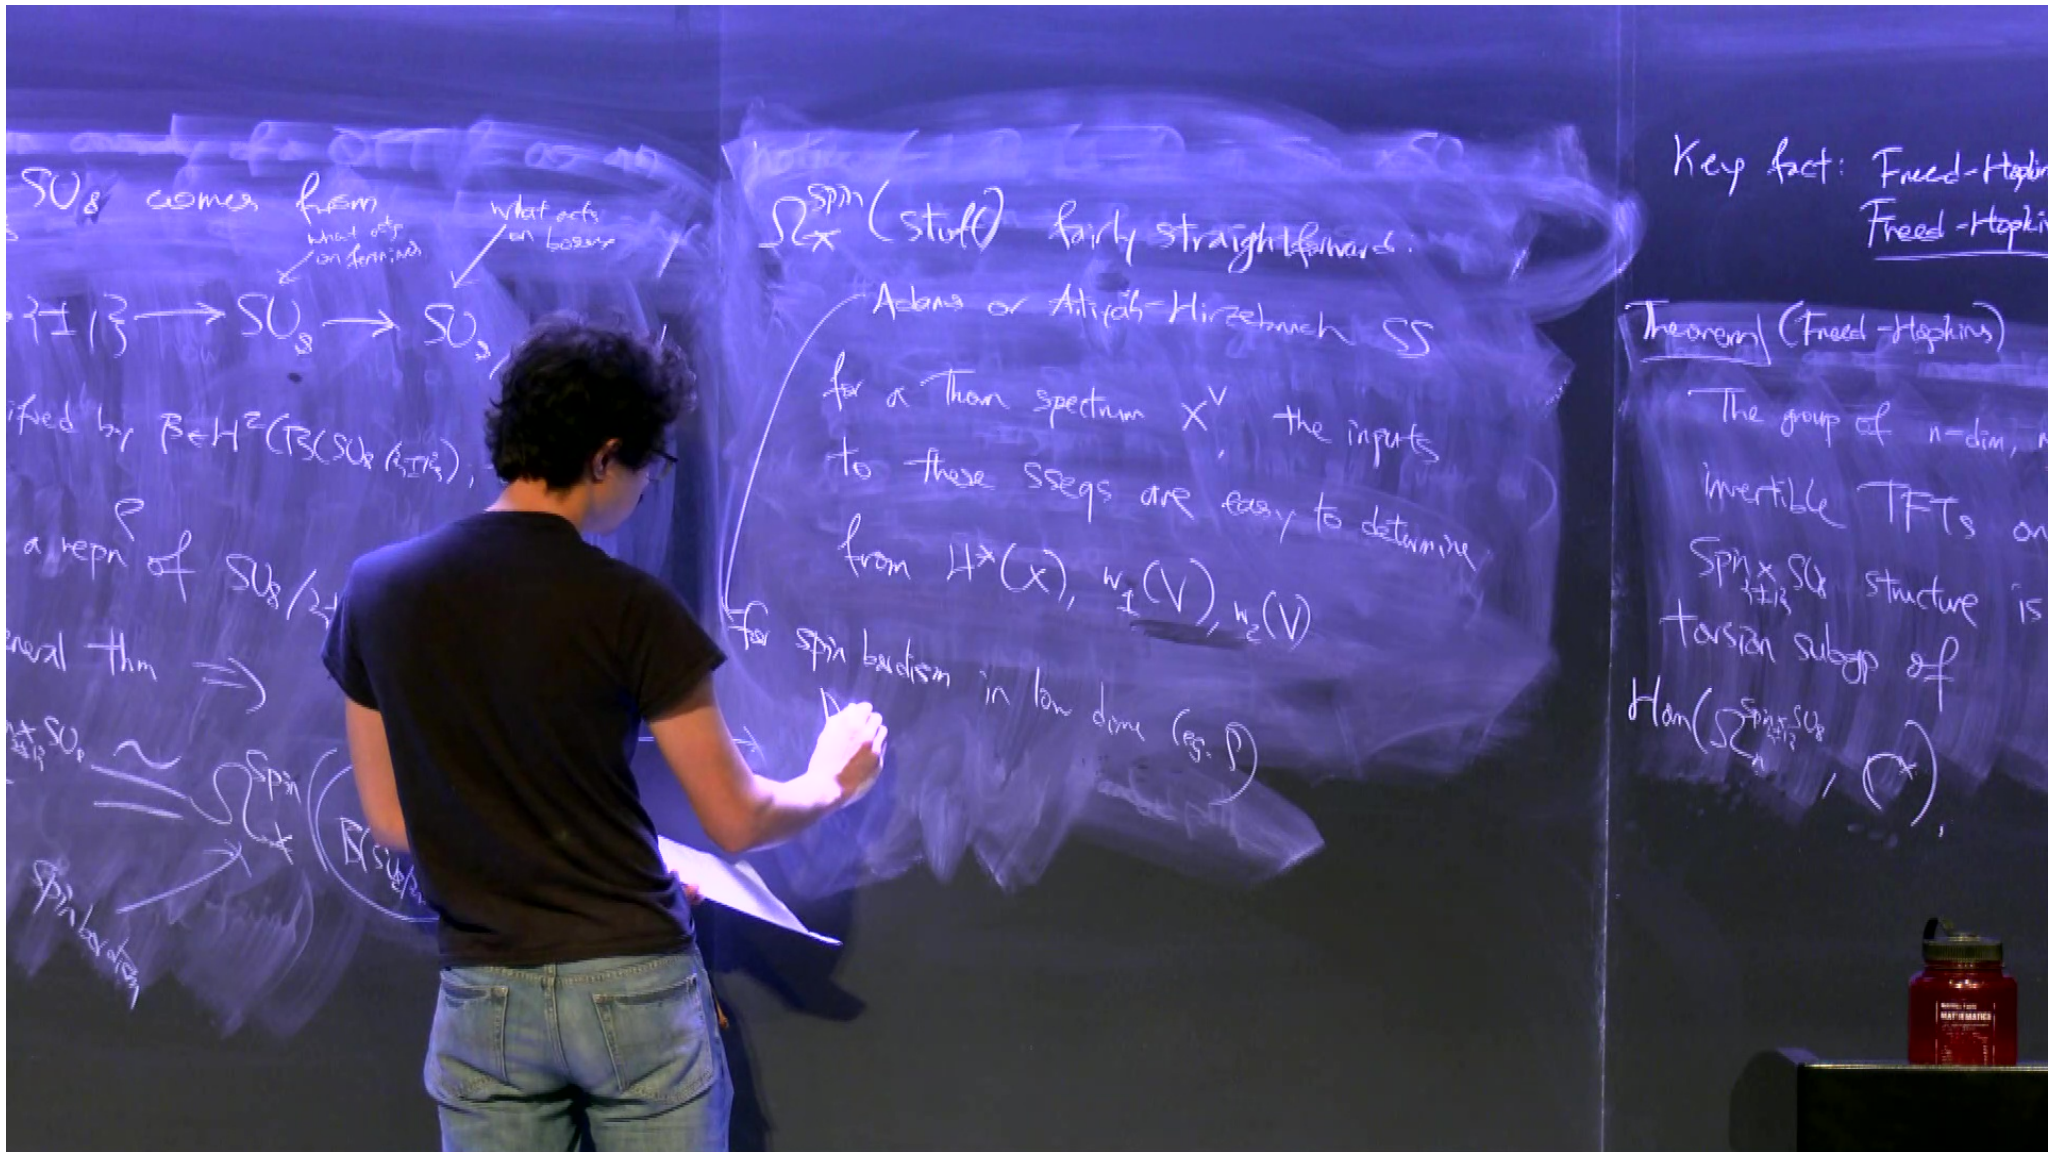 SU₈ comes from
what acts
on fermions
what acts
on bosons
{±1} → SU₈ → SU₈/
ified by β ∈ H²(B(SU₈/{±1}),
a repn ρ of SU₈/{±
eneral thm ⇒
SU₈ ≅ Ω^Spin_* (B(SU₈/{±
spin bordism
Ω^spin_* (stuff) fairly straightforward.
Adams or Atiyah-Hirzebruch SS
for a Thom spectrum X^V, the inputs
to these sseqs are easy to determine
from H*(X), w₁(V), w₂(V)
for spin bordism in low dims (eg. 5)
Key fact: Freed-Hopkin
Freed-Hopki
Theorem (Freed-Hopkins)
The group of n-dim,
invertible TFTs on
Spin ×_{±1} SU₈ structure is
torsion subgp of
Hom(Ω^{Spin ×_{±1} SU₈}_n, C^×).
MATHEMATICS